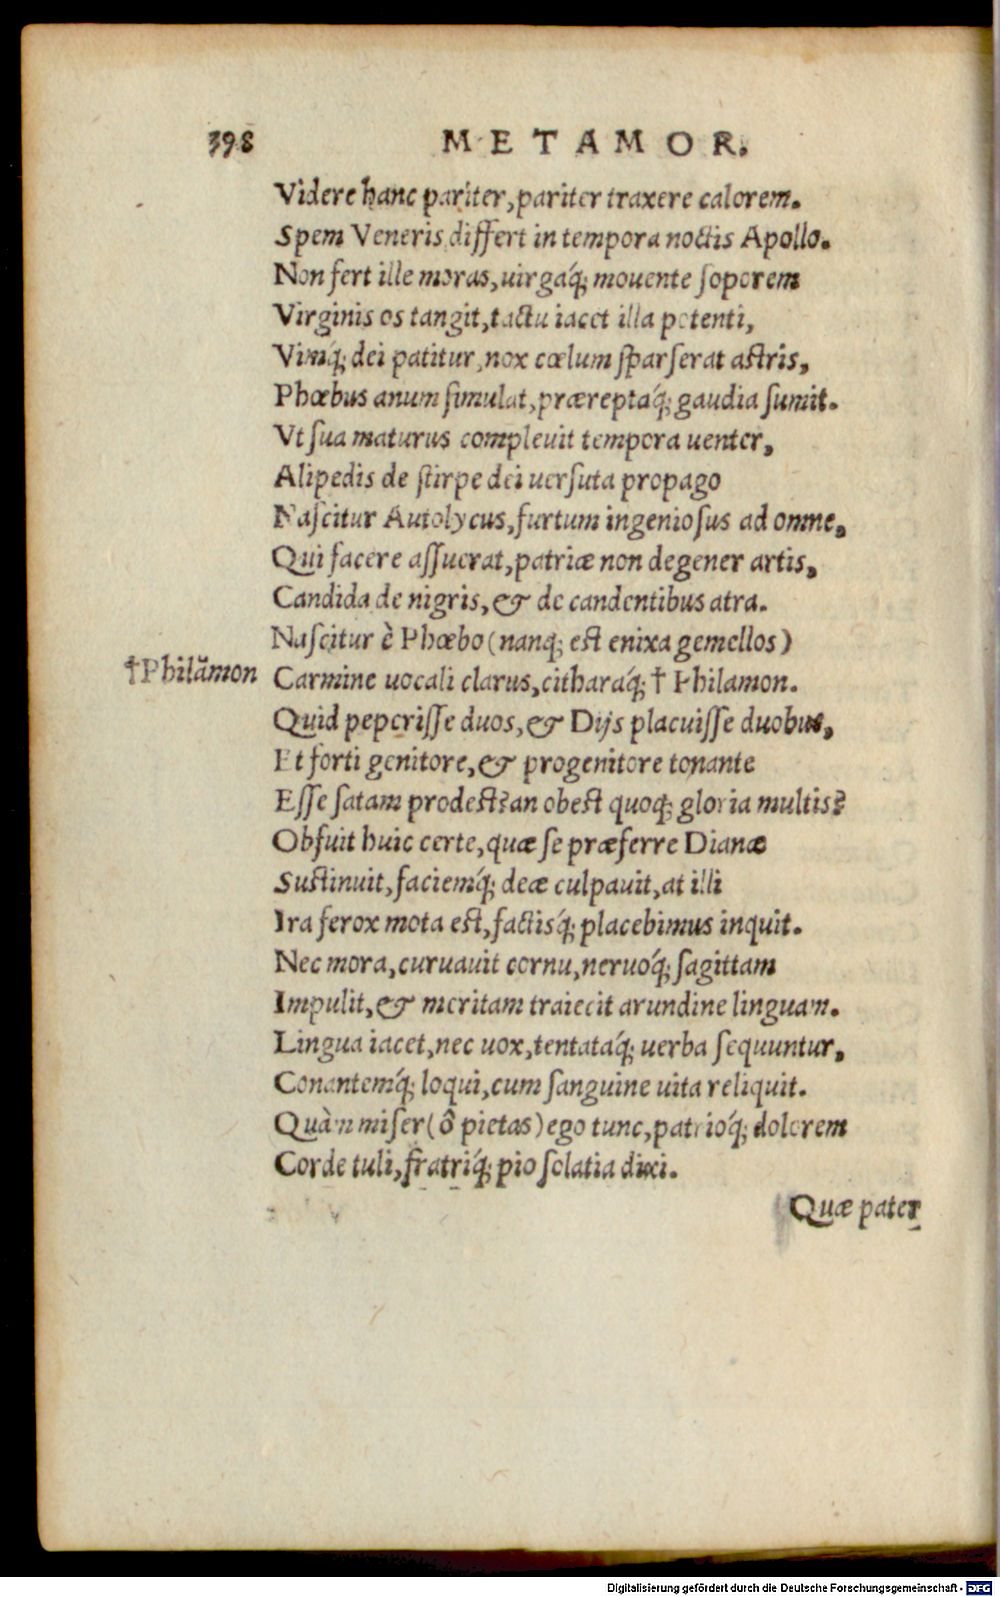 398 METAMOR.
Videre hanc pariter, pariter traxere calorem.
Spem Veneris differt in tempora noctis Apollo.
Non fert ille moras, uirgaq́; mouente soporem
Virginis os tangit, tactu iacet illa potenti,
Vimq́; dei patitur, nox cœlum sparserat astris,
Phœbus anum simulat, præreptaq́; gaudia sumit.
Vt sua maturus compleuit tempora uenter,
Alipedis de stirpe dei uersuta propago
Nascitur Autolycus, furtum ingeniosus ad omne,
Qui facere assuerat, patriæ non degener artis,
Candida de nigris, & de candentibus atra.
Nascitur è Phœbo (nanq; est enixa gemellos)
†Philāmon Carmine uocali clarus, citharaq́; † Philamon.
Quid peperisse duos, & Dijs placuisse duobus,
Et forti genitore, & progenitore tonante
Esse satam prodest? an obest quoq; gloria multis?
Obfuit huic certe, quæ se præferre Dianæ
Sustinuit, faciemq́; deæ culpauit, at illi
Ira ferox mota est, factisq́; placebimus inquit.
Nec mora, curuauit cornu, neruoq́; sagittam
Impulit, & meritam traiecit arundine linguam.
Lingua iacet, nec uox, tentataq́; uerba sequuntur,
Conantemq́; loqui, cum sanguine uita reliquit.
Quàm miser (ô pietas) ego tunc, patrioq́; dolorem
Corde tuli, fratriq́; pio solatia dixi.
Quæ pater
Digitalisierung gefördert durch die Deutsche Forschungsgemeinschaft - DFG